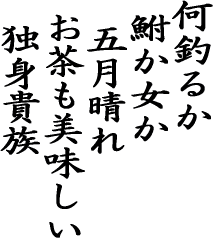 何釣るか
鮒か女か
五月晴れ
お茶も美味しい
独身貴族